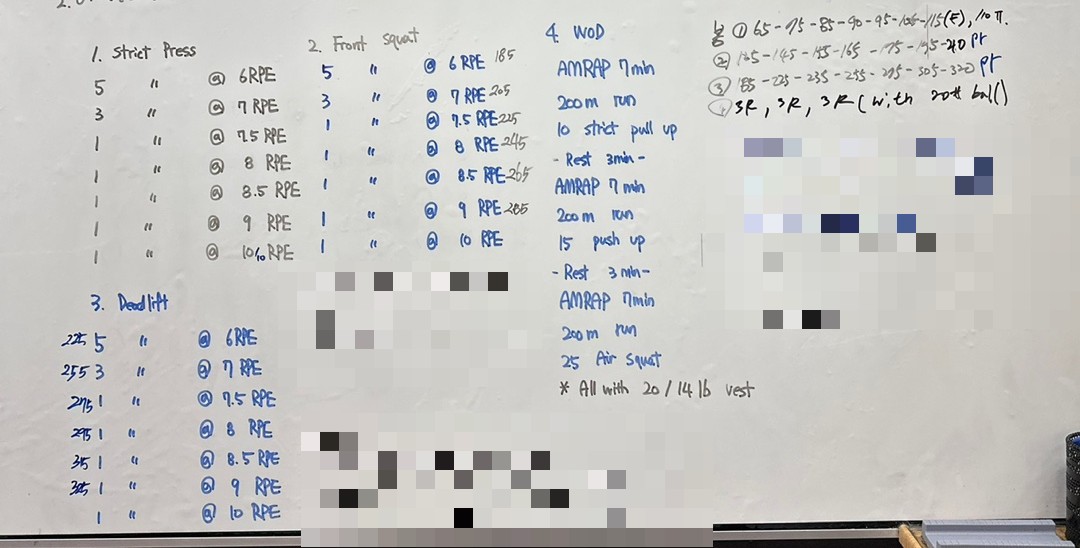 1. Strict Press
5 " @ 6 RPE
3 " @ 7 RPE
1 " @ 7.5 RPE
1 " @ 8 RPE
1 " @ 8.5 RPE
1 " @ 9 RPE
1 " @ 10 RPE
2. Front Squat
5 " @ 6 RPE 185
3 " @ 7 RPE 205
1 " @ 7.5 RPE 225
1 " @ 8 RPE 245
1 " @ 8.5 RPE 265
1 " @ 9 RPE 285
1 " @ 10 RPE
3. Deadlift
225 5 " @ 6 RPE
255 3 " @ 7 RPE
275 1 " @ 7.5 RPE
295 1 " @ 8 RPE
315 1 " @ 8.5 RPE
1 " @ 9 RPE
1 " @ 10 RPE
4. WOD
AMRAP 7min
200m run
10 strict pull up
- Rest 3min -
AMRAP 7min
200m run
15 push up
- Rest 3min -
AMRAP 7min
200m run
25 Air squat
* All with 20/14 lb vest
봉 ① 65-75-85-90-95-105-115(F), 110
② 145-155-165-175 PR
③ 235-255 -305-320 PR
3R, 3R, 3R (with 20# ball)